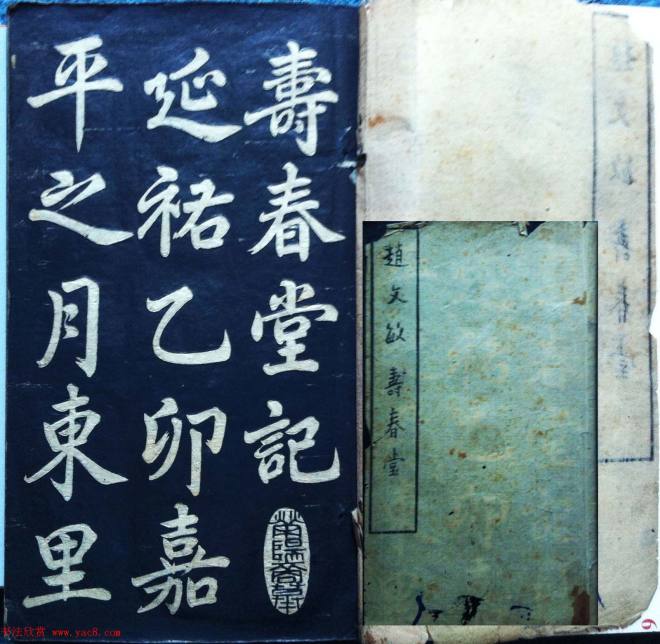 壽春堂記
延祐乙卯嘉
平之月東里
趙文敏壽春堂
书法欣赏 www.yac8.com
6